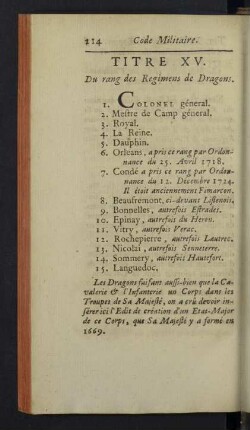 214 Code Militaire.
TITRE XV.
Du rang des Regimens de Dragons.
1. COLONEL général.
2. Mestre de Camp général.
3. Royal.
4. La Reine.
5. Dauphin.
6. Orleans, a pris ce rang par Ordon-
nance du 25. Avril 1718.
7. Condé a pris ce rang par Ordon-
nance du 12. Decembre 1724.
Il étoit anciennement Femarcon.
8. Beaufremont, ci-devant Listenois.
9. Bonnelles, autrefois Estrades.
10. Epinay, autrefois du Heron.
11. Vitry, autrefois Verac.
12. Rochepierre, autrefois Lautrec.
13. Nicolaï, autrefois Senneterre.
14. Sommery, autrefois Hautefort.
15. Languedoc,
Les Dragons faisant aussi-bien que la Ca-
valerie & l'Infanterie un Corps dans les
Troupes de Sa Majesté, on a crû devoir in-
sérer ici l'Edit de création d'un Etat-Major
de ce Corps, que Sa Majesté y a formé en
1669.